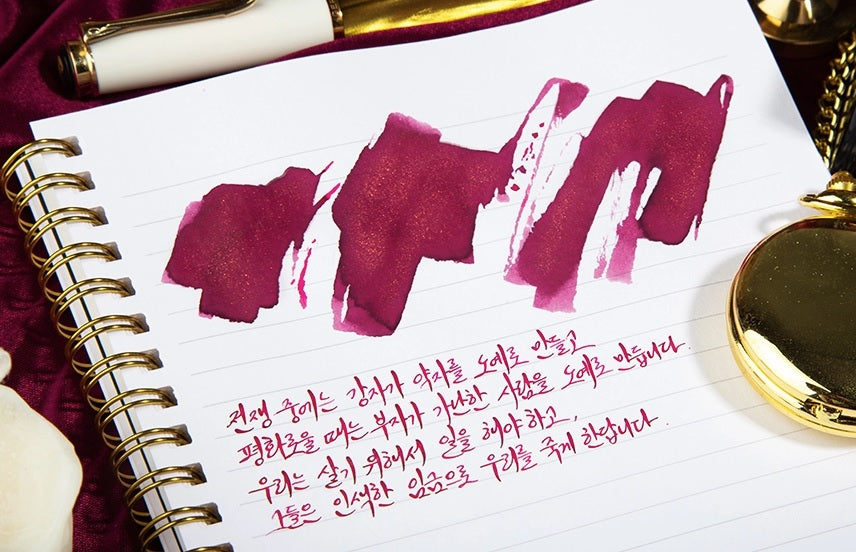 전쟁 중에는 강자가 약자를 노예로 만들고
평화로울 때는 부자가 가난한 사람을 노예로 만듭니다.
우리는 살기 위해서 일을 해야 하고,
그들은 인색한 임금으로 우리를 죽게 한답니다.